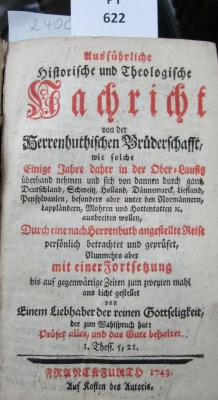 2400
PT
622
Ausführliche
Historische und Theologische
Nachricht
von der
Herrenhuthischen Brüderschafft,
wie solche
Einige Jahre daher in der Ober-Lausitz
überhand nehmen und sich von dannen durch gantz
Deutschland, Schweitz, Holland, Dännemarck, Liefland,
Pensylvanien, besonders aber unter den Normännern,
Lappländern, Mohren und Hottentotten ꝛc.
ausbreiten wollen,
Durch eine nach Herrenhuth angestellte Reise
persönlich betrachtet und geprüfet,
Nunmehro aber
mit einer Fortsetzung
bis auf gegenwärtige Zeiten zum zweyten mahl
ans Licht gestellet
von
Einem Liebhaber der reinen Gottseligkeit,
der zum Wahlspruch hat:
Prüfet alles, und das Gute behaltet.
1. Thess. 5, 21.
FRANCKFURTH 1743.
Auf Kosten des Autoris.